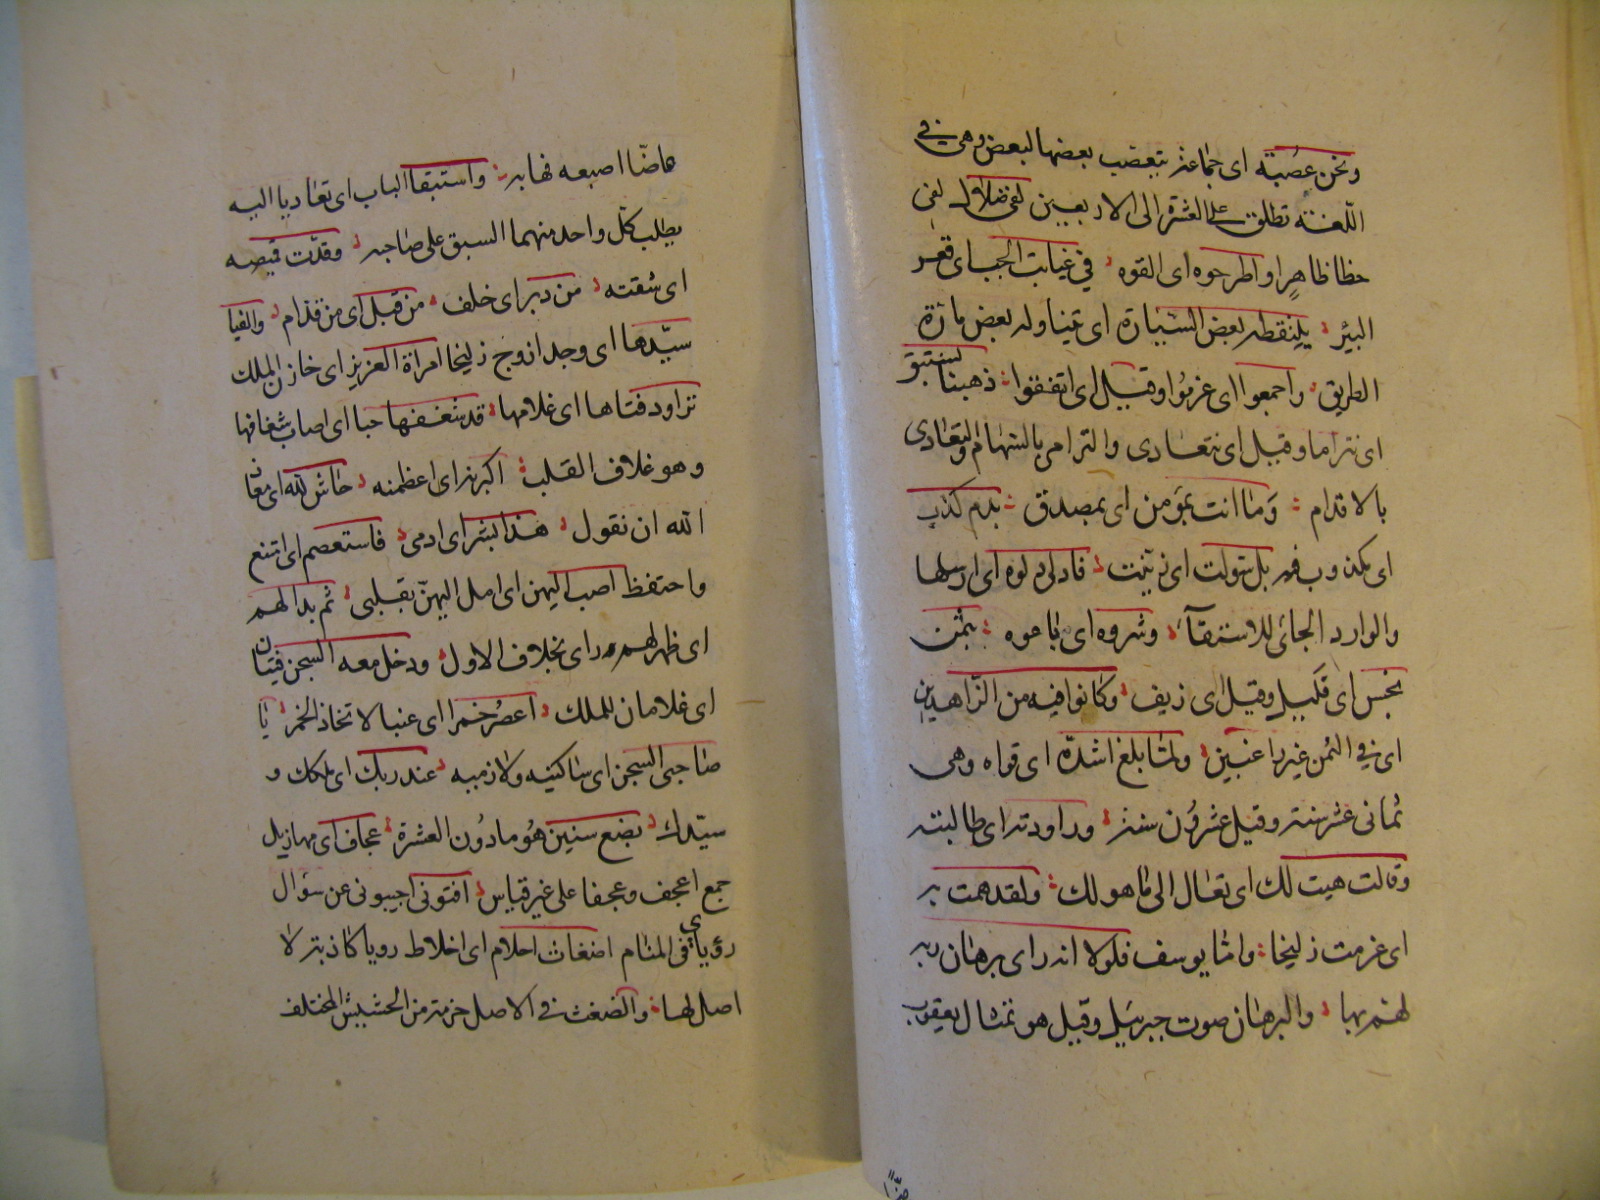 ونحن عصبة اى جماعة يتعصب بعضها لبعض وهى فى
اللغة تطلق على العشرة الى الاربعين لفى ضلال اى لفى
خطا ظاهر او اطرحوه اى القوه فى غيابت الجب اى قعر
البئر يلتقطه بعض السيارة اى يتناوله بعض مارة
الطريق واجمعوا اى عزموا وقيل اى اتفقوا ذهبنا نستبق
اى نتراما وقيل اى نتعادى والترامى بالسهام والتعادى
بالاقدام وما انت بمؤمن اى بمصدق بدم كذب
اى مكذوب فيه بل سولت اى زينت فادلى دلوه اى ارسلها
والوارد الجائ للاستقآء وشروه اى باعوه بثمن
بخس اى قليل وقيل اى زيف وكانوا فيه من الزاهدين
اى فى الثمن غير راغبين ولما بلغ اشده اى قواه وهى
ثمانى عشر سنة وقيل عشرون سنة وراودته اى طالبته
وقالت هيت لك اى تعال الى ما هو لك ولقد همت به
اى عزمت زليخا واما يوسف فلولا انه راى برهان ربه
لهم بها والبرهان صوت جبرئيل وقيل هو تمثال يعقوب
عاضا اصبعه فهابه واستبقا الباب اى تعاديا اليه
يطلب كل واحد منهما السبق على صاحبه وقدت قميصه
اى شقته من دبر اى خلف من قبل اى من قدام والفيا
سيدها اى وجدا زوج زليخا امراة العزيز اى خازن الملك
تراود فتاها اى غلامها قد شغفها حبا اى اصاب شغافها
وهو غلاف القلب اكبرنه اى اعظمنه حاش لله اى معاذ
الله ان نقول هذا بشرا اى ادمى فاستعصم اى امتنع
واحتفظ اصب اليهن اى امل اليهن بقلبى ثم بدا لهم
اى ظهر لهم راى بخلاف الاول ودخل معه السجن فتيان
اى غلامان للملك اعصر خمرا اى عنبا لاتخاذ الخمر يا
صاحبى السجن اى ساكنيه ولازميه عند ربك اى ملكك و
سيدك بضع سنين هو مادون العشرة عجاف اى مهازيل
جمع اعجف وعجفا على غير قياس افتونى اجيبونى عن سؤال
رؤياى فى المنام اضغاث احلام اى اخلاط رويا كاذبة لا
اصل لها والضغث فى الاصل حزمة من الحشيش المختلف